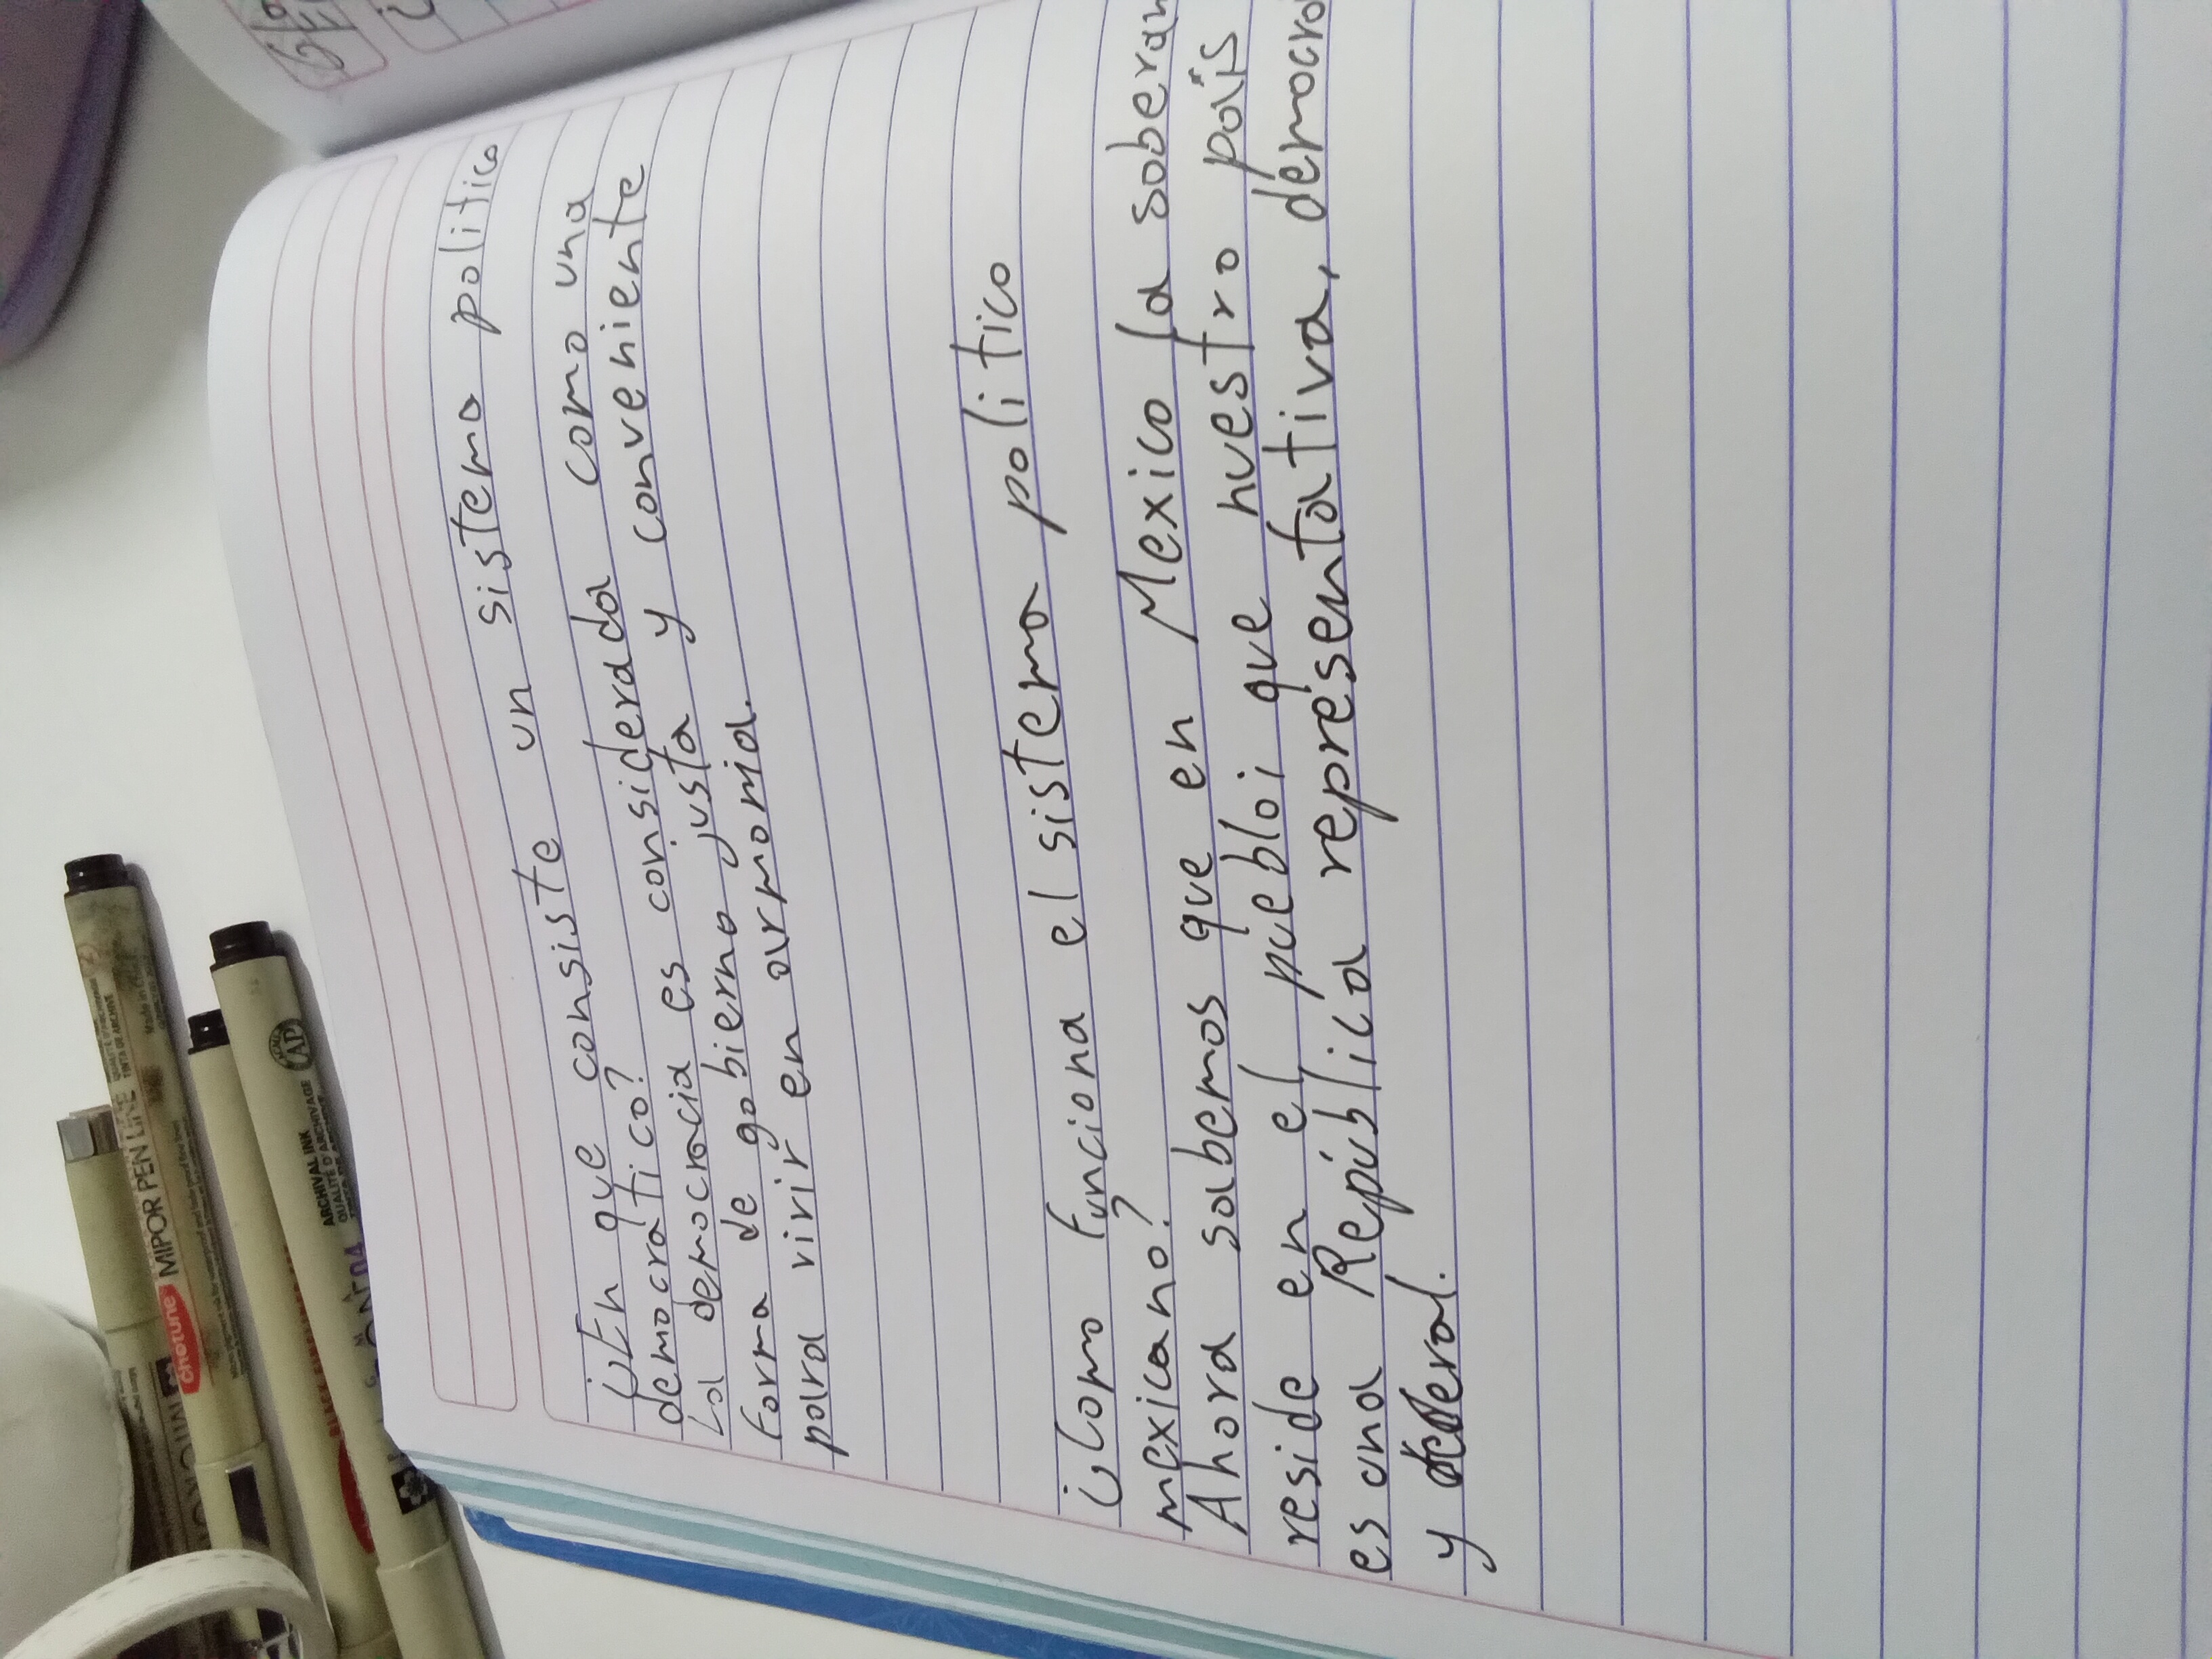 ¿En que consiste un sistema politico
democratico?
La democracia es considerada como una
forma de gobierno justa y conveniente
para vivir en armonia.
¿Como funciona el sistema politico
mexicano?
Ahora sabemos que en Mexico la soberan
reside en el puebloi que nuestro país
es una República representativa, democra
y federal.
MIPOR PEN LINE
cheTune
ARCHIVAL INK